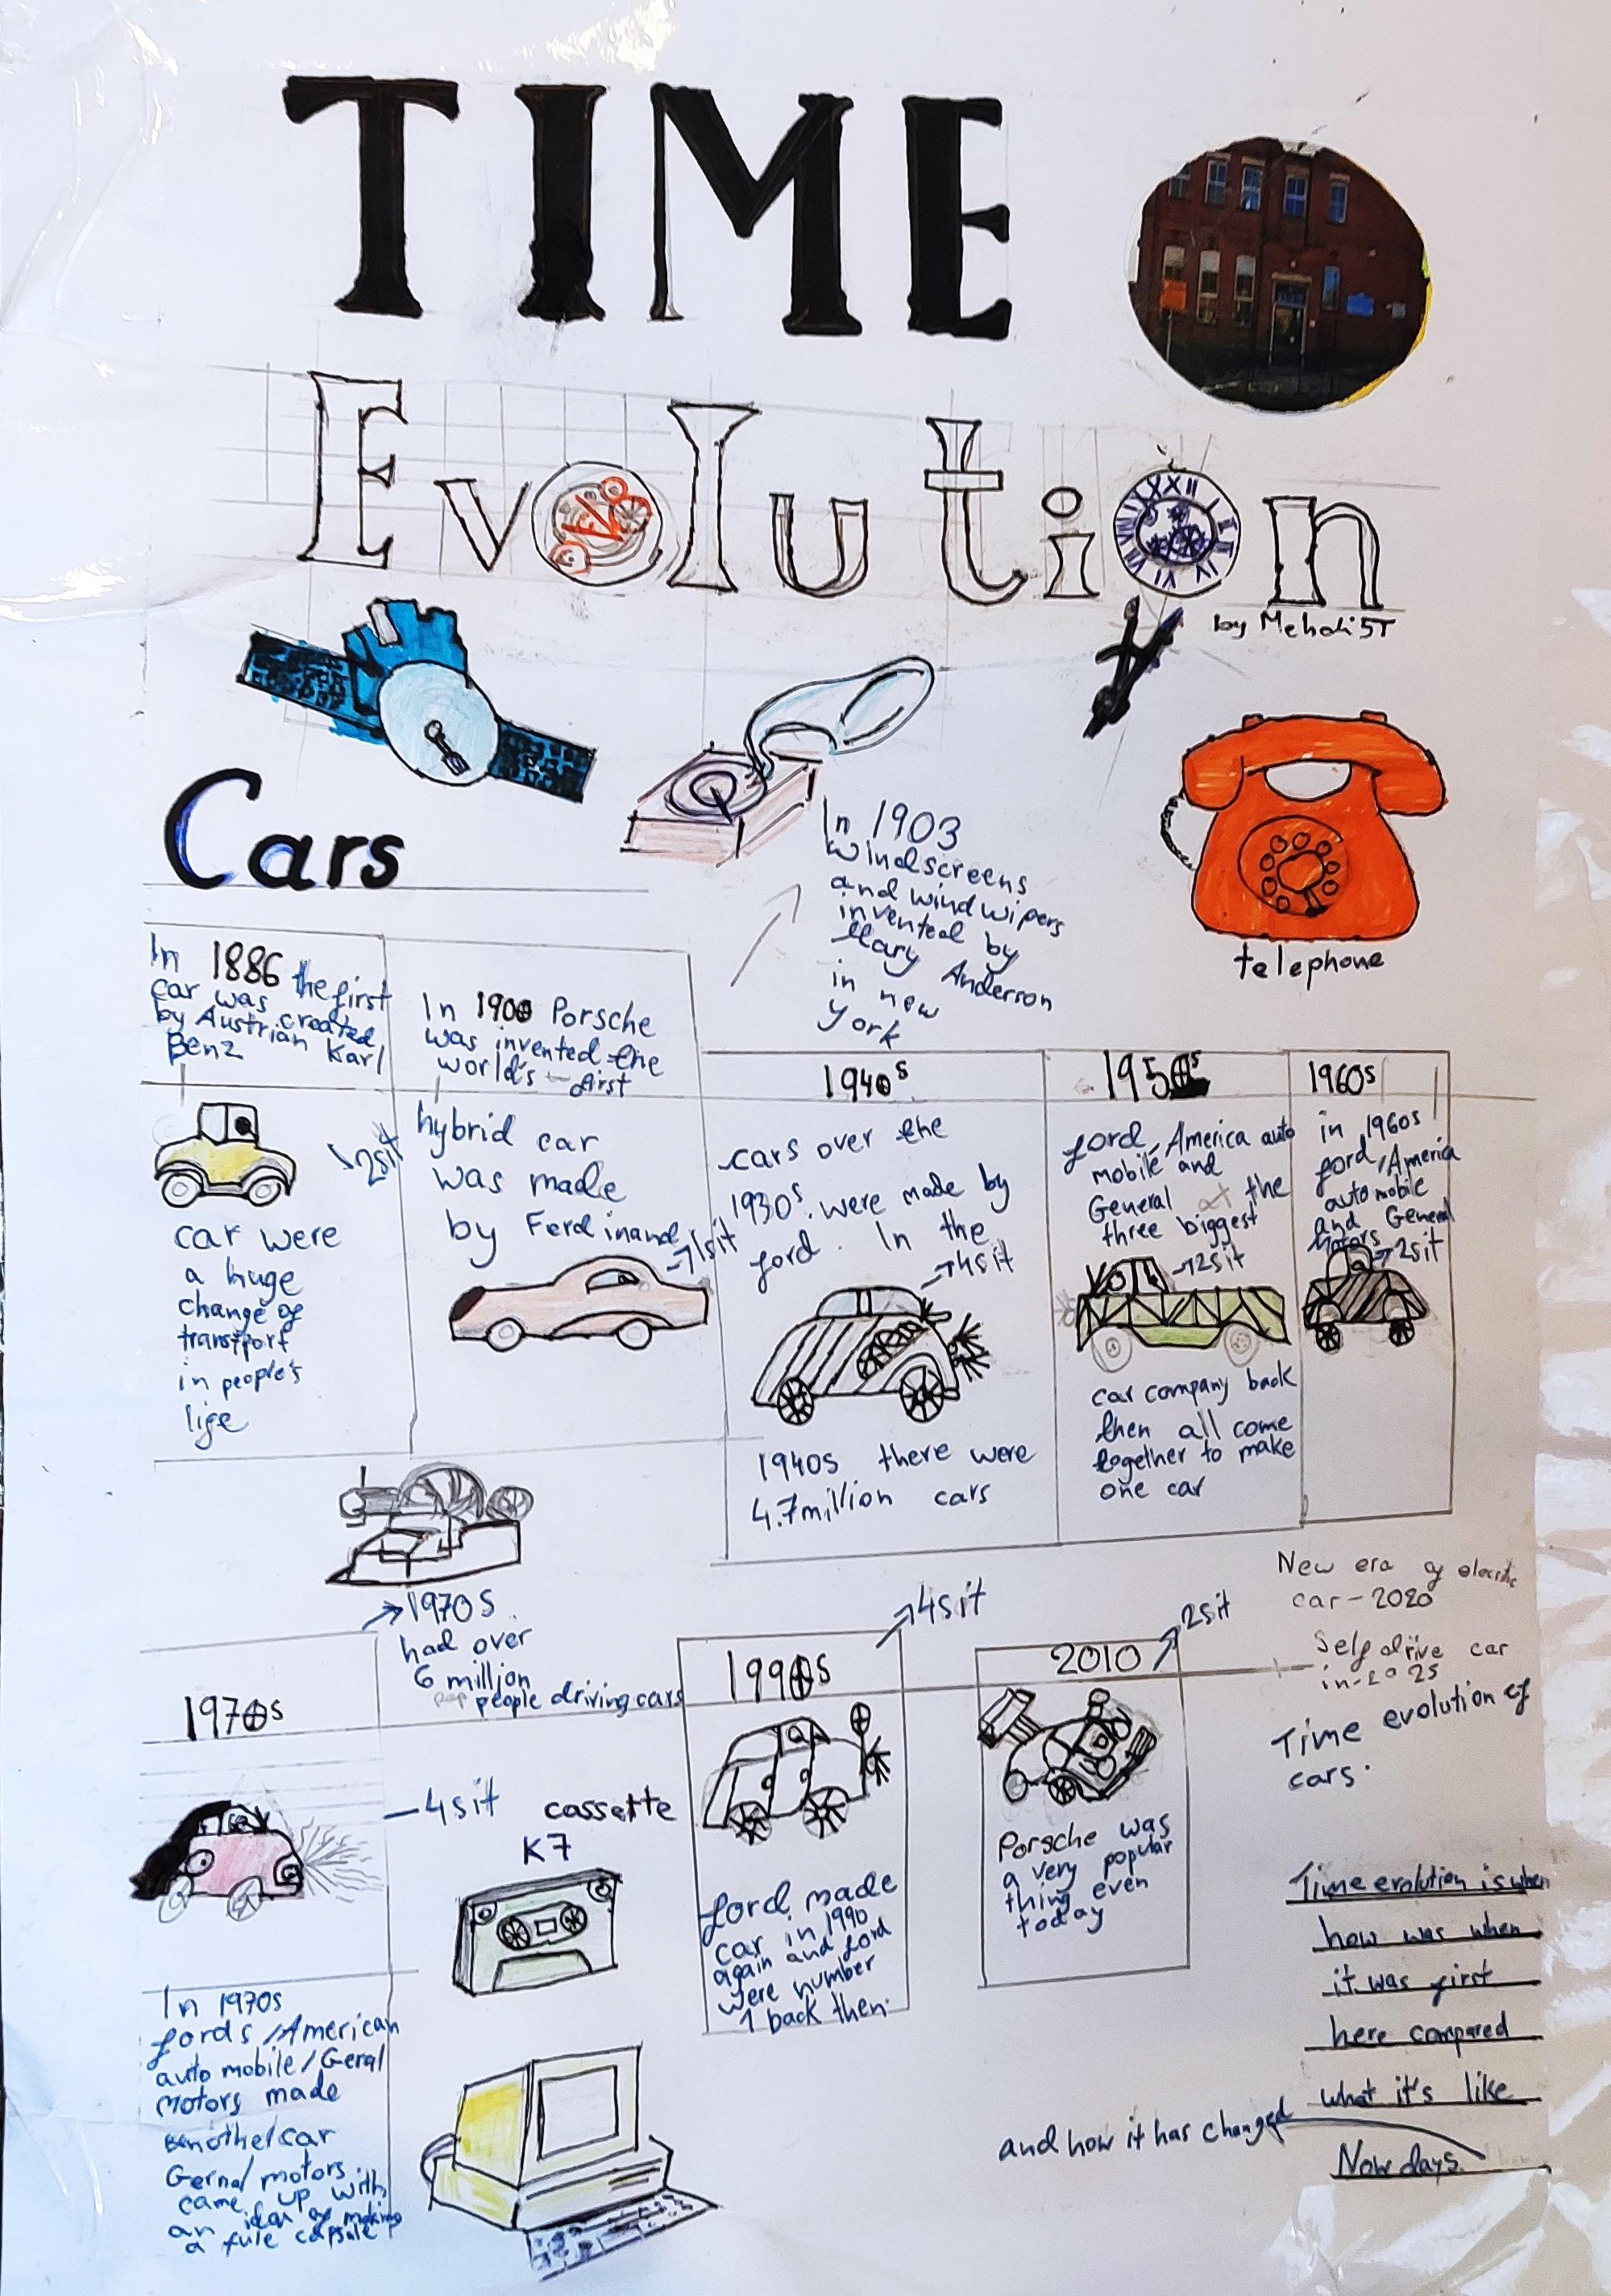 TIME
Evolution
by Mehdi 5T
Cars
In 1903
windscreens
and wind wipers
invented by
Mary Anderson
in new
york
telephone
In 1886 the first
car was created
by Austrian Karl
Benz
In 1900 Porsche
was invented the
world's first
hybrid car
was made
by Ferdinand
1sit
2sit
car were
a huge
change of
transport
in people's
life
1940s
cars over the
1930s were made by
ford. In the
4sit
1940s there were
4.7million cars
1950s
ford, America auto
mobile and
General at the
three biggest
2sit
car company back
then all come
together to make
one car
1960s
in 1960s
ford/America
auto mobile
and General
Motors
2sit
1970s
had over
6 million
people driving cars
1970s
4sit
In 1970s
fords/American
auto mobile/Geral
motors made
another car
Gernal motors
came up with
an idea of making
a fule capsule
cassette
K7
1990s
4sit
ford made
car in 1990
again and ford
were number
1 back then.
2010
2sit
Porsche was
a very popular
thing even
today
New era of electric
car-2020
Self drive car
in-2025
Time evolution of
cars.
Time evolution is when
how was when
it was first
here compared
what it's like
Now days
and how it has changed